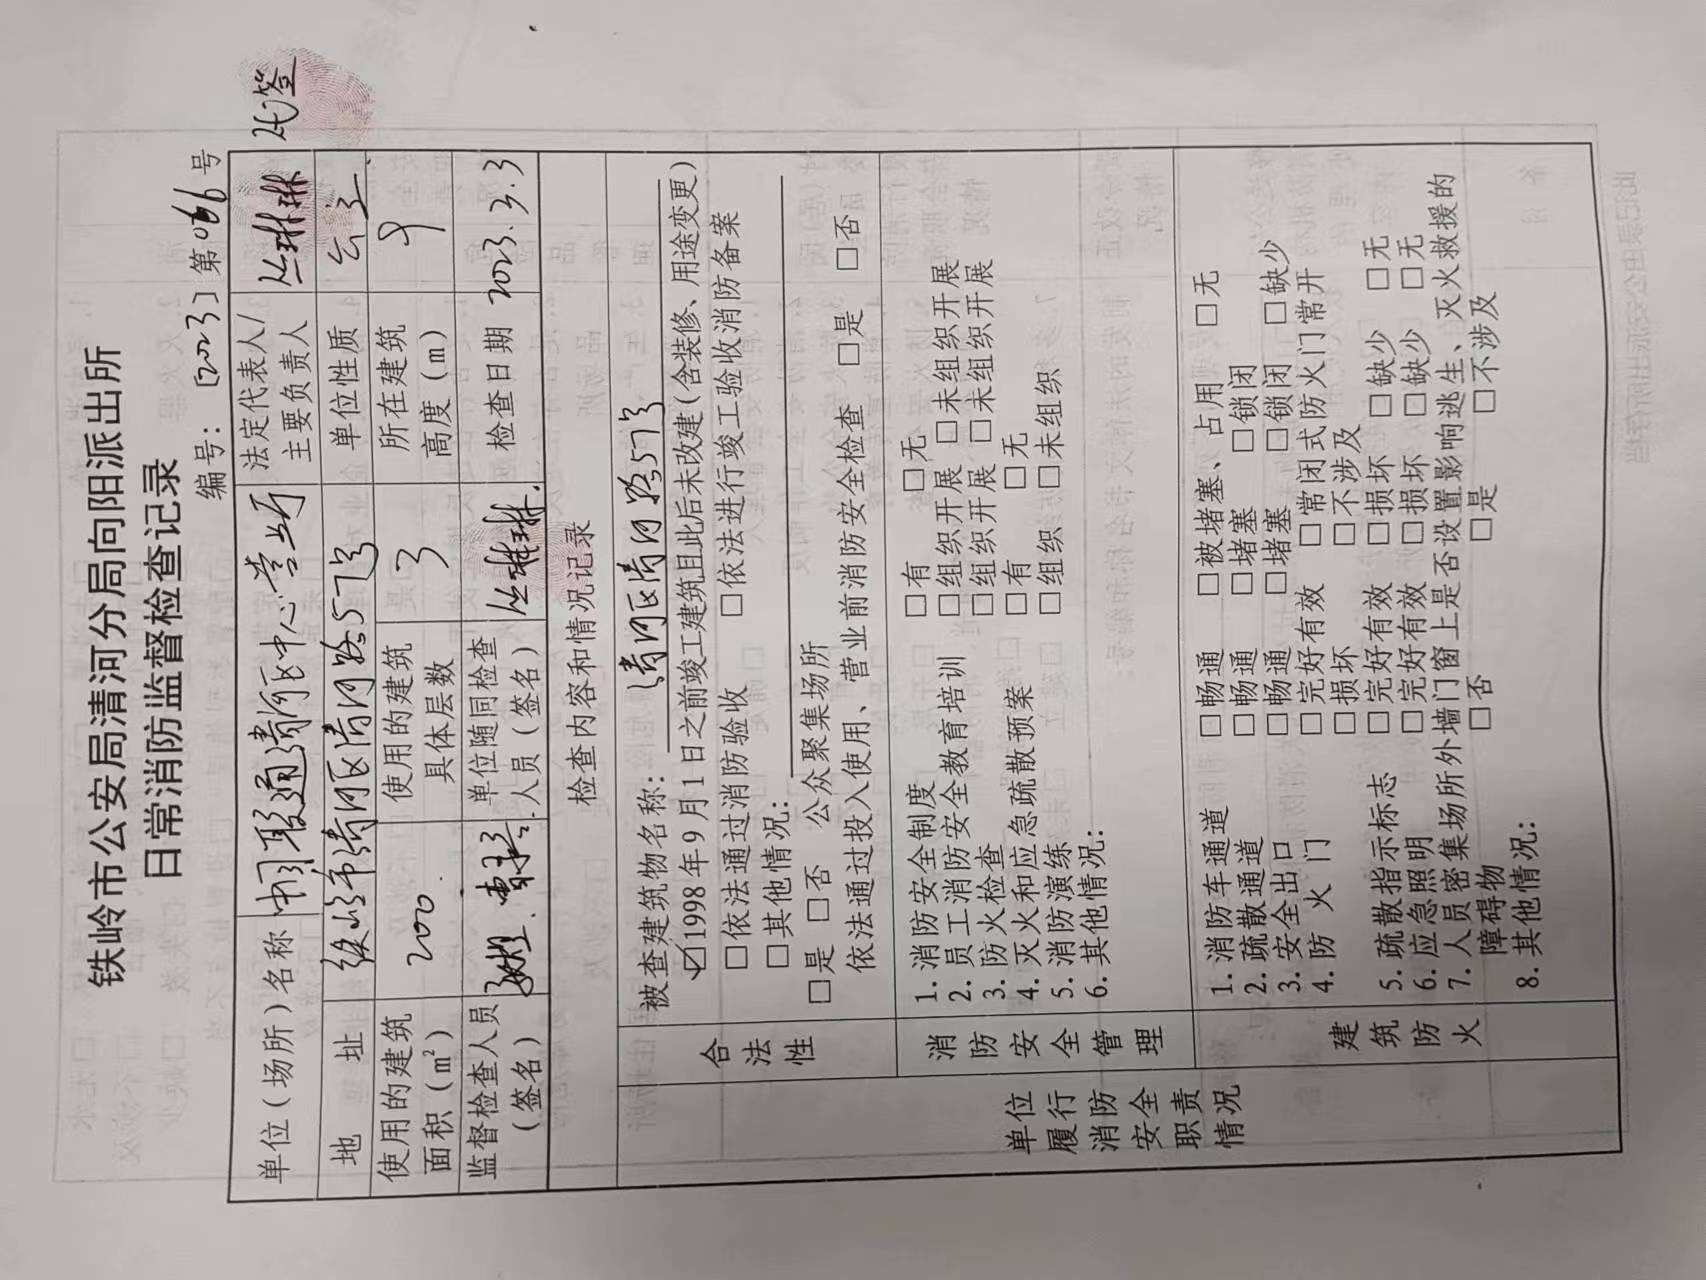 铁岭市公安局清河分局向阳派出所
日常消防监督检查记录
编号：〔2023〕第066号
单位（场所）名称 中国联通清河区中心营业厅 法定代表人/主要负责人 丛琳琳 代签
地 址 铁岭市清河区清河路57号 单位性质
使用的建筑面积（m²） 2000 使用的建筑具体层数 3 所在建筑高度（m） 9
监督检查人员（签名） 单位随同检查人员（签名） 丛琳琳 检查日期 2023.3.3
检查内容和情况记录
单位履行消防安全职责情况
合法性
被查建筑物名称： 清河区清河路57号
☑1998年9月1日之前竣工建筑且此后未改建（含装修、用途变更）
□依法通过消防验收 □依法进行竣工验收消防备案
□其他情况：
□是 □否 公众聚集场所
依法通过投入使用、营业前消防安全检查 □是 □否
消防安全管理
1. 消防安全制度 □有 □无
2. 员工消防安全教育培训 □组织开展 □未组织开展
3. 防火检查 □组织开展 □未组织开展
4. 灭火和应急疏散预案 □有 □无
5. 消防演练 □组织 □未组织
6. 其他情况：
建筑防火
1. 消防车通道 □畅通 □被堵塞、占用 □无
2. 疏散通道 □畅通 □堵塞 □锁闭
3. 安全出口 □畅通 □堵塞 □锁闭 □缺少
4. 防 火 门 □完好有效 □常闭式防火门常开
□损坏 □不涉及
5. 疏散指示标志 □完好有效 □损坏 □缺少 □无
6. 应急照明 □完好有效 □损坏 □缺少 □无
7. 人员密集场所外墙门窗上是否设置影响逃生、灭火救援的
障碍物 □否 □是 □不涉及
8. 其他情况：